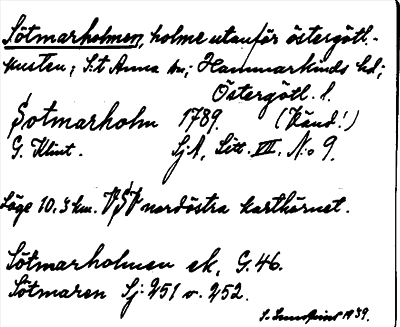 Sötmarholmen, holme utanför östergötl.-
kusten; S:t Anna sn; Hammarkinds hd;
Östergötl. l.
Sotmarholm 1789. (Känd!)
G. Klint. SjA, Litt. VII. N:o 9.
Läge 10.3 km. VSV nordöstra karthörnet.
Sötmarholmen ek, G.46.
Sötmaren Sj: 251 v. 252.
1939.